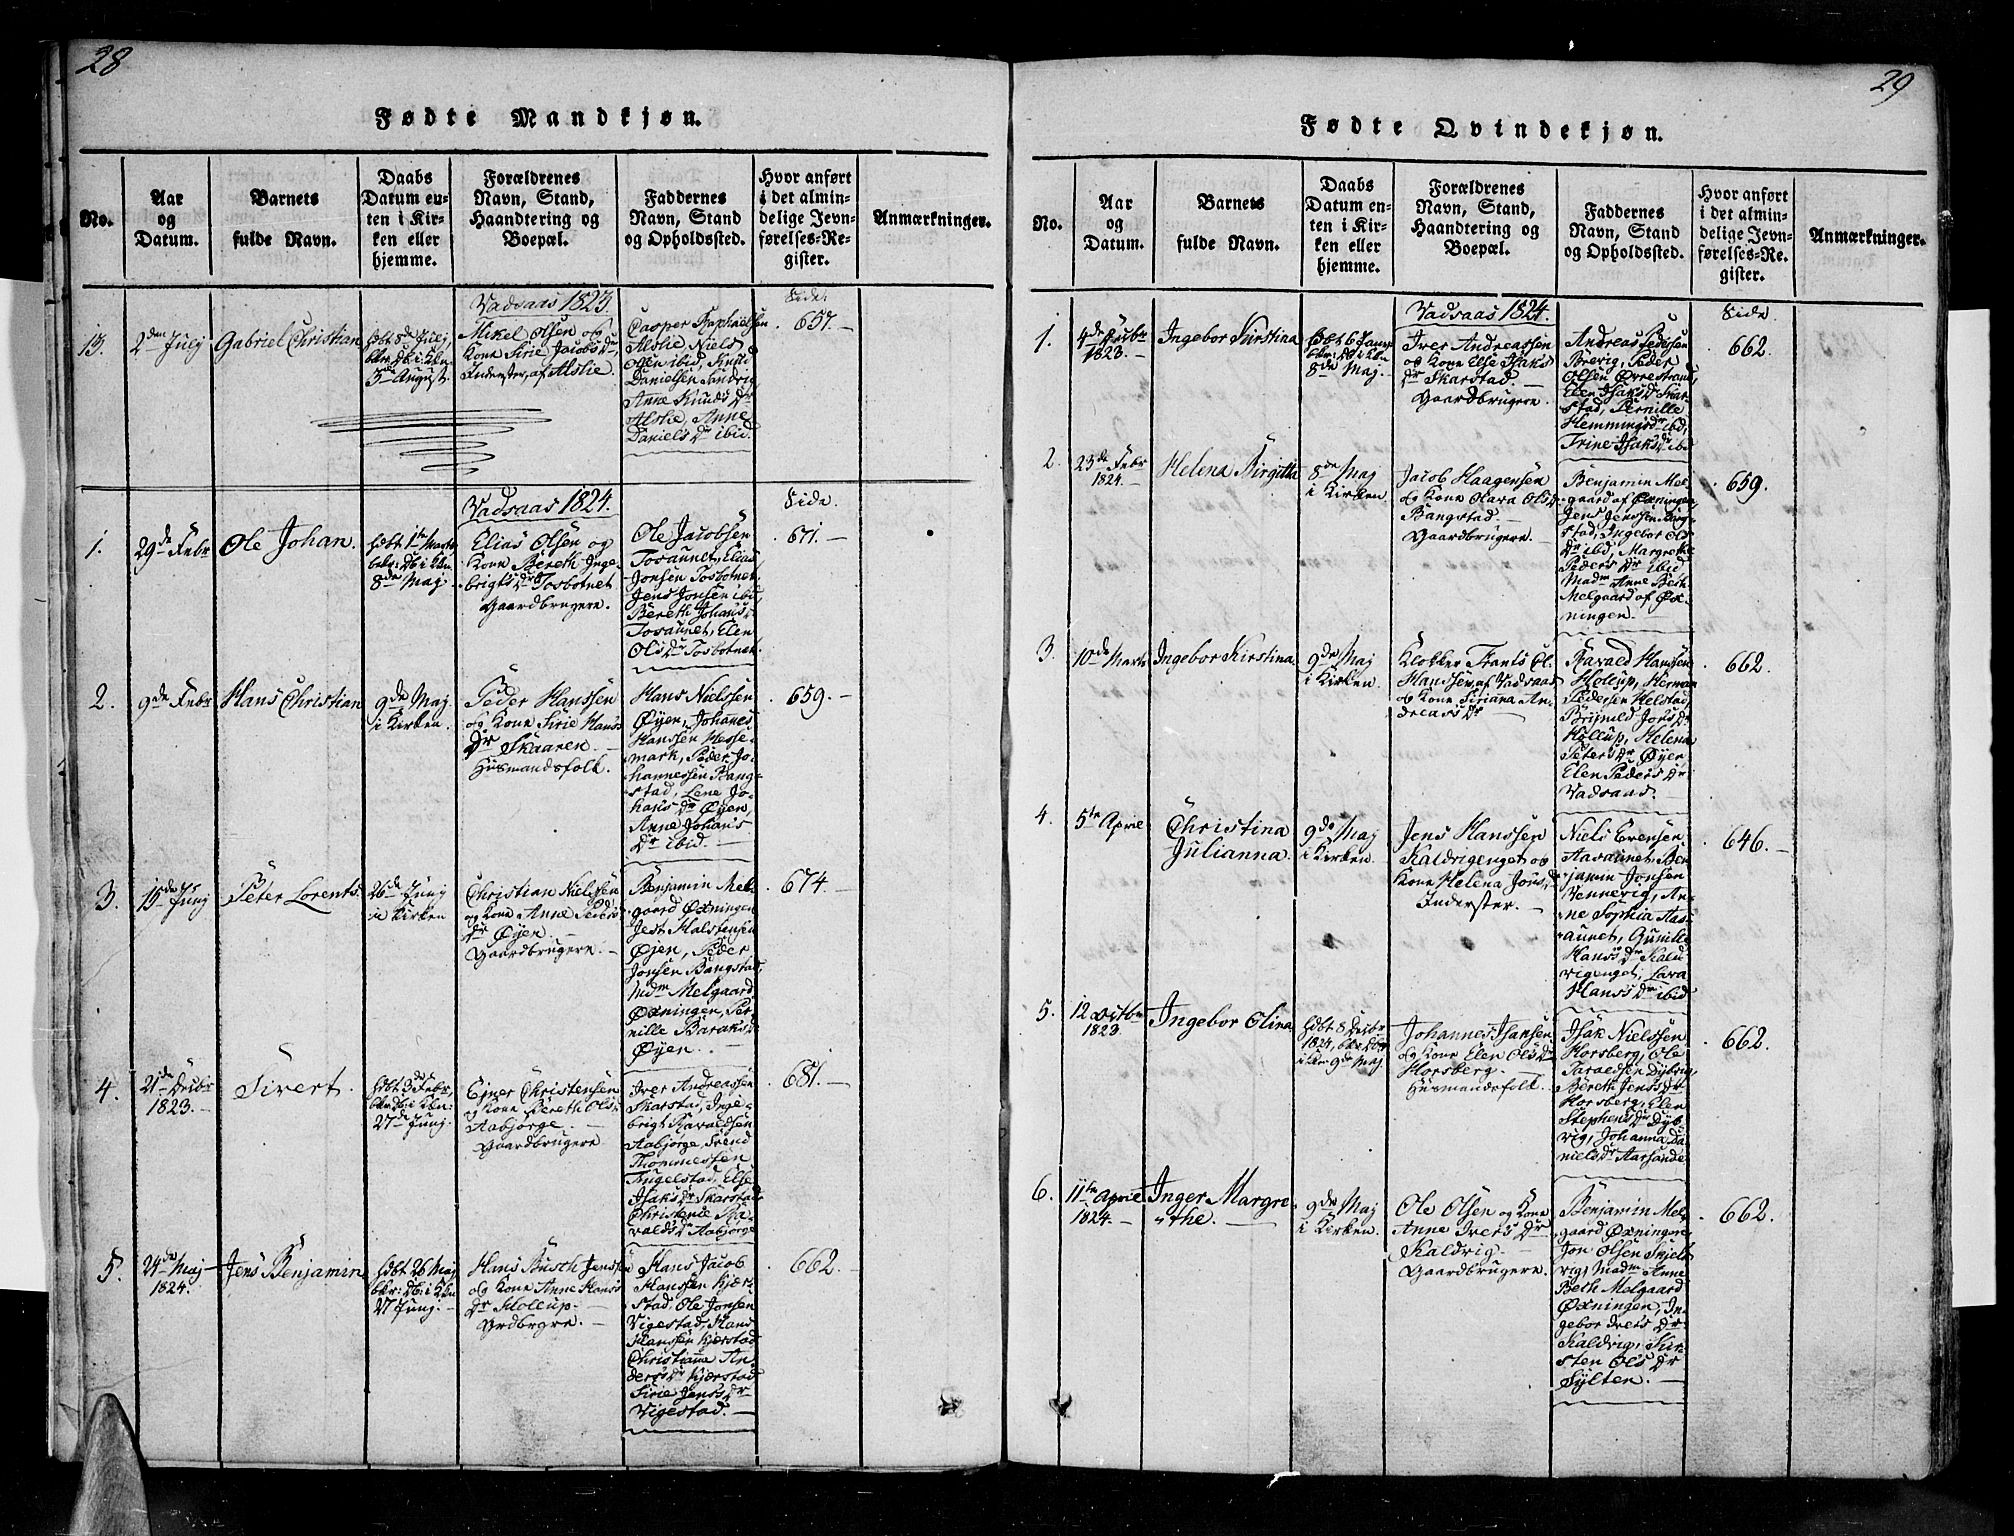 28
Fødte Mandkjøn.
No.
Aar
og
Datum.
Barnets
fulde Navn.
Daabs
Datum en-
ten i Kir-
ken eller
hjemme.
Forældrenes
Navn, Stand,
Haandtering og
Boepæl.
Faddernes
Navn, Stand
og Opholdssted.
Hvor anført
i det almin-
delige Jevn-
førelses-Re-
gister.
Anmærkninger.
Vadsaas 1823.
Side
13.
2den July
Gabriel Christian
hdbt 8de July,
3de August.
Mikel Olsen og
Kone Sirie Jacobsdr
Inderster, af Alslie.
Casper Raphaelsen
Alslie, Niels
Olsen ibid, Knud
Danielsen Sundrig
Anne Knudsdr
Alslie, Anne
Danielsdr ibid.
657.
Vadsaas 1824.
Side.
1.
29de Febr
Ole Johan.
hdbt 1te Marts
8de Maj
Elias Olsen og
Kone Bereth Inge-
brigtsdr Tosbotnet
Gaardbrugere.
Ole Jacobsen
Tosaunet, Elias
Jonsen Tosbotnet,
Jens Jonsen ibid,
Bereth Johans
Tosaunet, Elen
Olsdr Tosbotnet.
671.
2.
9de Febr
Hans Christian
9de Maj
i Kirken.
Peder Hanssen
og Kone Sirie Hans
dr Skaaren.
Husmandsfolk.
Hans Nielssen
Øyen, Johannes
Hanssen Hesse-
mark, Peder Jo-
hannessen Bang-
stad, Lene Jo-
hansdr Øyen,
Anne Johans
dr ibid.
659.
3.
15de Juny
Peter Lorents.
26de Juny
i Kirken
Christian Nielssen
og Kone Anne Peders
dr Øyen.
Gaardbrugere.
Benjamin Mel-
gaard Øxningen
Jest Halstensen
Øyen, Peder
Jonsen Bangstad,
Madm Melgaard
Øxningen, Per-
nille Baraksdr
Øyen.
674.
4.
21de Decbr
1823.
Sivert.
hdbt 3de Febr,
27de Juny.
Ejner Christensen
og Kone Bereth Olsdr
Aabjørge.
Gaardbrugere
Iver Andreassen
Skarstad, Inge-
brigt Ravaldsen
Aabjørge, Svend
Thommessen
Fuglestad, Else
Isaksdr Skarstad
Christence Ra-
valdsdr Aabjørge
681.
5.
24de Maj
1824.
Jens Benjamin
hdbt 26 Maj
27 Juny.
Hans Busch Jenssen
og Kone Anne Hans
dr Hollup.
Grdbrgre.
Hans Jacob
Hanssen Kjær-
stad, Ole Jonsen
Vigestad, Hans
Hanssen Kjærstad
Christianne An-
dersdr Kjærstad
Sirie Jensdr
Vigestad.
662.
29
Fødte Qvindekjøn.
No.
Aar
og
Datum.
Barnets
fulde Navn.
Daabs
Datum en-
ten i Kir-
ken eller
hjemme.
Forældrenes
Navn, Stand,
Haandtering og
Boepæl.
Faddernes
Navn, Stand
og Opholdssted.
Hvor anført
i det almin-
delige Jevn-
førelses-Re-
gister.
Anmærkninger.
Vadsaas 1824.
Side.
1.
4de Decbr
1823.
Ingebor Kirstina
8de Maj.
Iver Andreassen
og Kone Else Isaks
dr Skarstad.
Gaardbrugere.
Andreas Pedersen
Brevig, Peder
Olsen Øvrestrand,
Elen Isaksdr Skar-
stad, Pernille
Hemmingsdr ibd,
Trine Isaksdr ibd
662.
2.
23de Febr
1824.
Helena Birgitta
8de Maj
i Kirken
Jacob Haagensen
og Kone Olava Olsdr
Bangstad.
Gaardbrugere.
Benjamin Mel-
gaard af Øxningen,
Jens Jenssen Bang-
stad, Ingebor Ols
dr ibd, Margrethe
Pedersdr ibid
Madm Anne Beth
Melgaard af Øx-
ningen.
659.
3.
10de Marts
Ingebor Kirstina.
9de Maj
i Kirken
Klokker Frants Ol.
Hanssen af Vadsaas
og Kone Siriana An-
dreasdr
Ravald Hanssen
Hollup, Herman
Pedersen Helstad,
Brynild Jonsdr
Hollup, Helena
Petersdr Øyen
Elen Pedersdr
Vadsaas.
662.
4.
5te April
Christina
Julianna.
9de Maj
i Kirken.
Jens Hanssen
Kaldvigenget og
Kone Helena Jonsdr
Inderster.
Niels Evensen
Aasaunet, Ben-
jamin Jonsen
Vennevig, An-
ne Sophia Aas-
aunet, Gunille
Hansdr Kald-
vigenget, Lava
Hansdr ibid
646.
5.
12 Octbr
1823.
Ingebor Olina
hdbt 8 Decbr
9de Maj
Johannes Isaksen
og Kone Elen Olsdr
Horsberg.
Husmandsfolk.
Isak Nielssen
Horsberg, Ole
Taraldsen Dybvig,
Bereth Jensdr
Horsberg, Elen
Stephensdr Dyb-
vig, Johanna Da-
nielsdr Aarsande
662.
6.
11te April
1824.
Inger Margre
the.
9de Maj
i Kirken.
Ole Olsen og Kone
Anne Iversdr
Kaldvig.
Gaardbrugere.
Benjamin Mel-
gaard Øxningen
Jon Olsen Skjels-
vig, Madm Anne
Beth Melgaard
Øxningen, In-
gebor Iversdr
Kaldvig, Kir-
sten Olsdr
Sylten.
662.